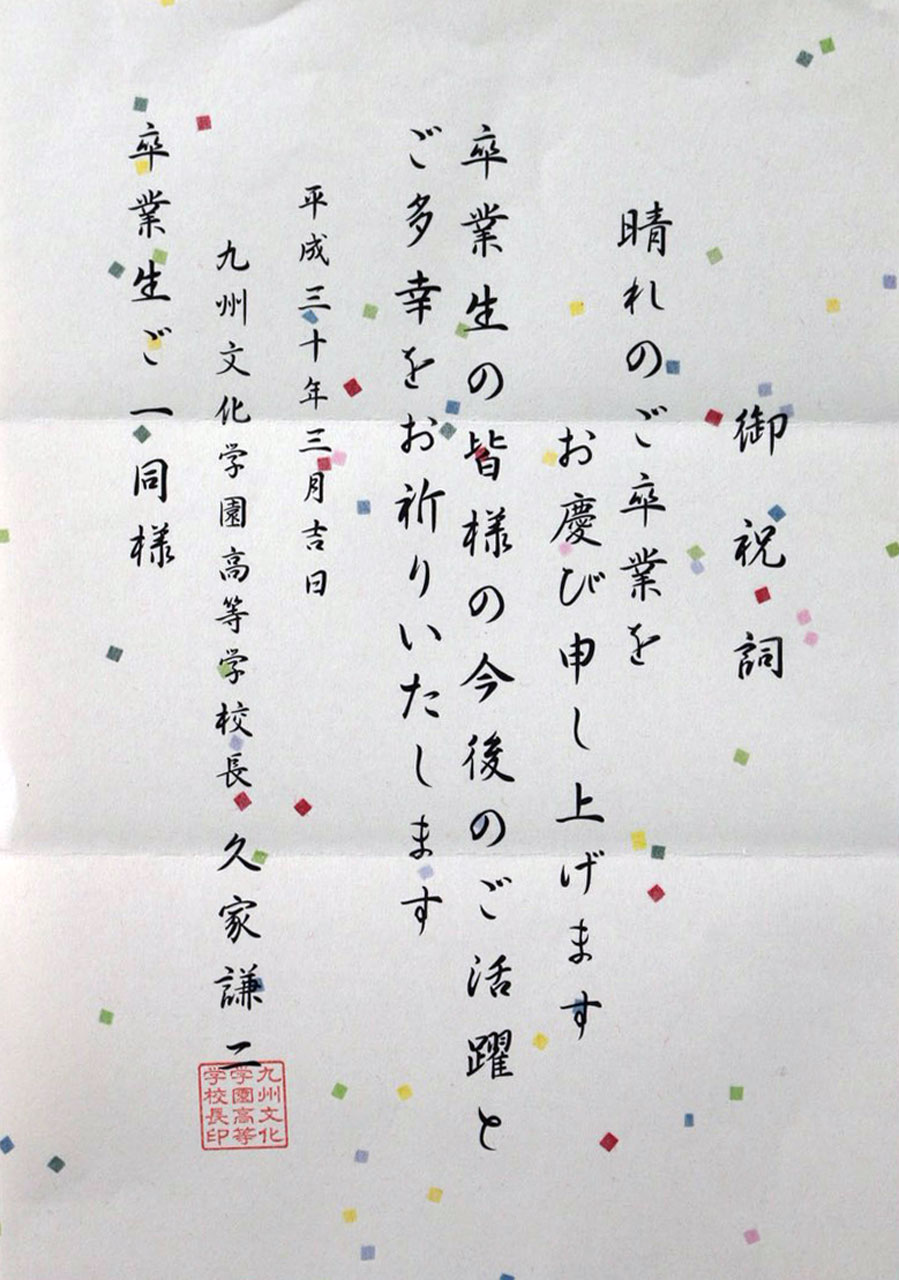 御祝詞
晴れのご卒業を
お慶び申し上げます
卒業生の皆様の今後のご活躍と
ご多幸をお祈りいたします
平成三十年三月吉日
九州文化学園高等学校長 久家謙二
九州文化
学園高等
学校長印
卒業生ご一同様